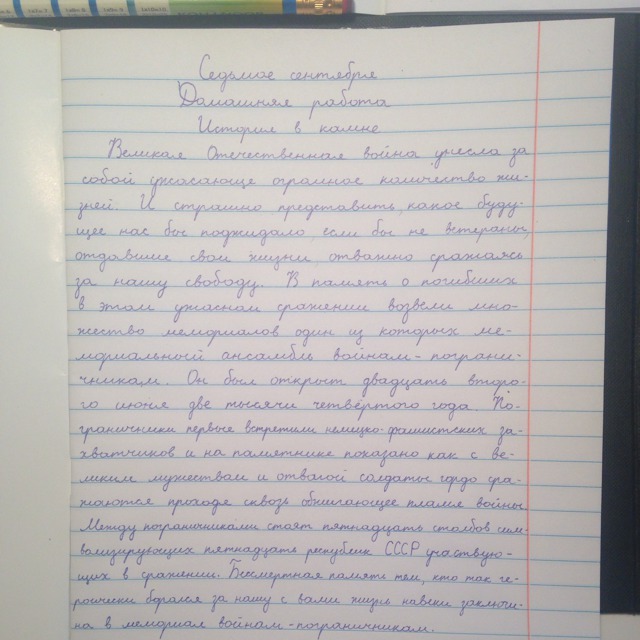 Седьмое сентября
Домашняя работа
История в камне
Великая Отечественная война унесла за
собой ужасающе огромное количество жи-
зней. И страшно представить, какое буду-
щее нас бы поджидало, если бы не ветераны,
отдавшие свои жизни, отважно сражаясь
за нашу свободу. В память о погибших
в этом ужасном сражении возвели мно-
жество мемориалов один из которых ме-
мориальный ансамбль войнам-пограни-
чникам. Он был открыт двадцать второ-
го июня две тысячи четвёртого года. По-
граничники первые встретили немецко-фашистских за-
хватчиков и на памятнике показано как с ве-
ликим мужеством и отвагой солдаты гордо сра-
жаются проходя сквозь обжигающее пламя войны.
Между пограничниками стоят пятнадцать столбов сим-
волизирующих пятнадцать республик СССР участвую-
щих в сражении. Бессмертная память тем, кто так ге-
роически боролся за нашу с вами жизнь навеки заключе-
на в мемориал войнам-пограничникам.